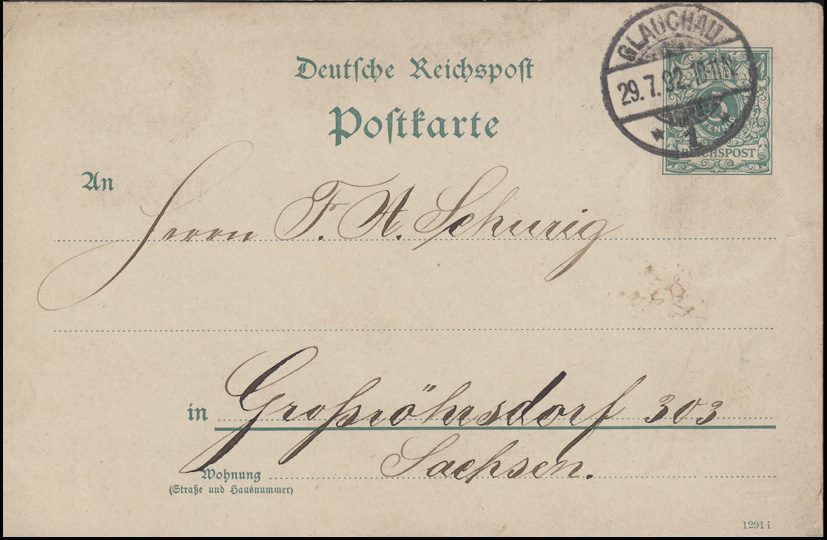 Deutsche Reichspost
Postkarte
GLAUCHAU
29.7.92.
1.
PFENNIG
REICHSPOST
An
Herrn F. A. Schurig
in Großröhrsdorf 303
Sachsen.
Wohnung
(Straße und Hausnummer)
1291 i